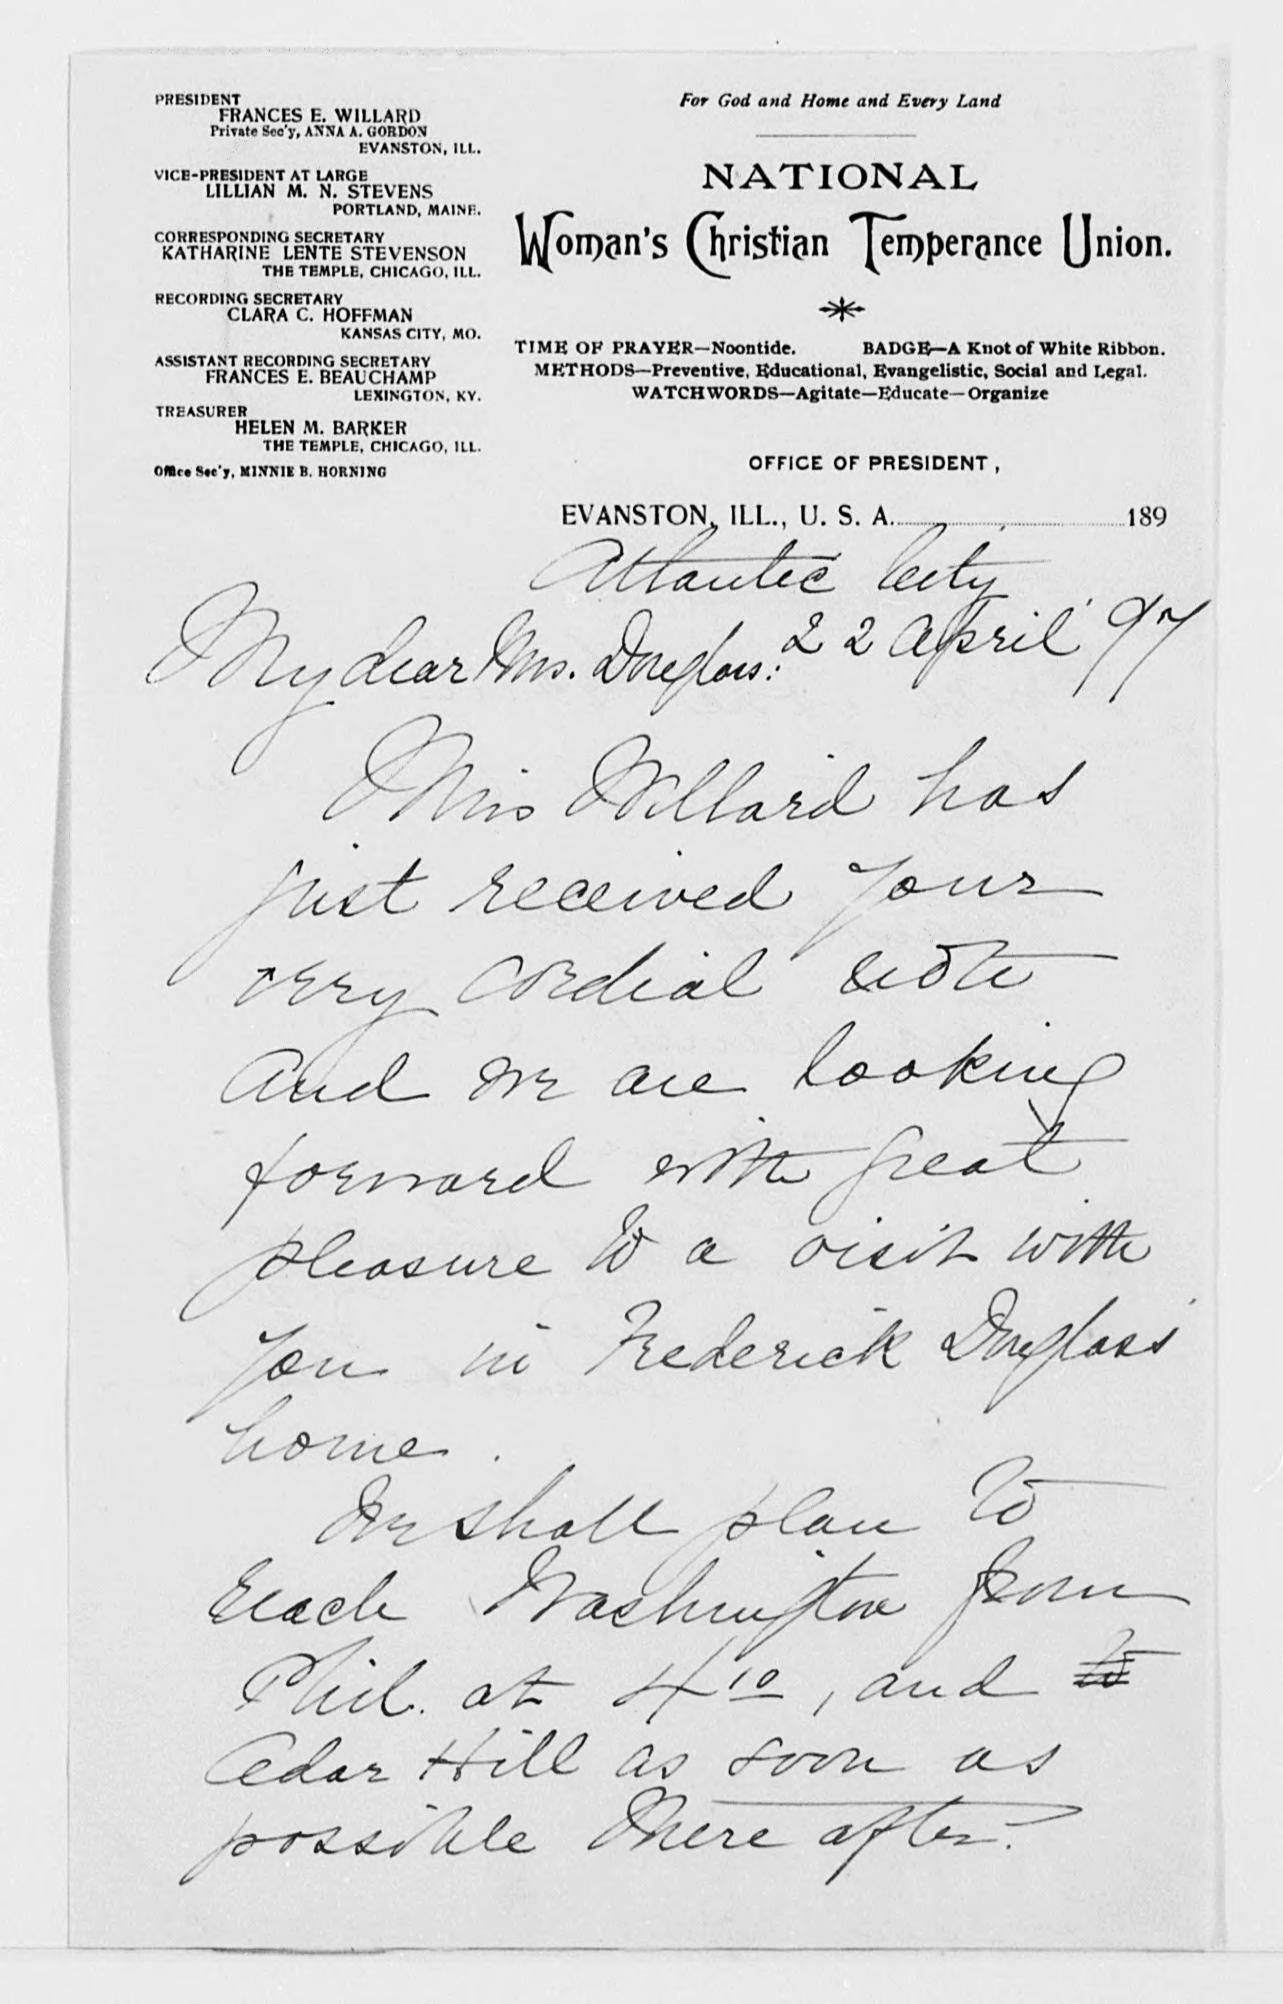 PRESIDENT
FRANCES E. WILLARD
Private Sec'y, ANNA A. GORDON
EVANSTON, ILL.
VICE-PRESIDENT AT LARGE
LILLIAN M. N. STEVENS
PORTLAND, MAINE.
CORRESPONDING SECRETARY
KATHARINE LENTE STEVENSON
THE TEMPLE, CHICAGO, ILL.
RECORDING SECRETARY
CLARA C. HOFFMAN
KANSAS CITY, MO.
ASSISTANT RECORDING SECRETARY
FRANCES E. BEAUCHAMP
LEXINGTON, KY.
TREASURER
HELEN M. BARKER
THE TEMPLE, CHICAGO, ILL.
Office Sec'y, MINNIE B. HORNING
For God and Home and Every Land
NATIONAL
Woman's Christian Temperance Union.
TIME OF PRAYER—Noontide. BADGE—A Knot of White Ribbon.
METHODS—Preventive, Educational, Evangelistic, Social and Legal.
WATCHWORDS—Agitate—Educate—Organize
OFFICE OF PRESIDENT,
EVANSTON, ILL., U. S. A. 189
Atlantic City
22 April '97
My dear Mrs. Douglass:
Miss Willard has
just received your
very cordial note
and we are looking
forward with great
pleasure to a visit with
you in Frederick Douglass'
home.
We shall plan to
reach Washington from
Phil. at 4 10, and to
Cedar Hill as soon as
possible there after.